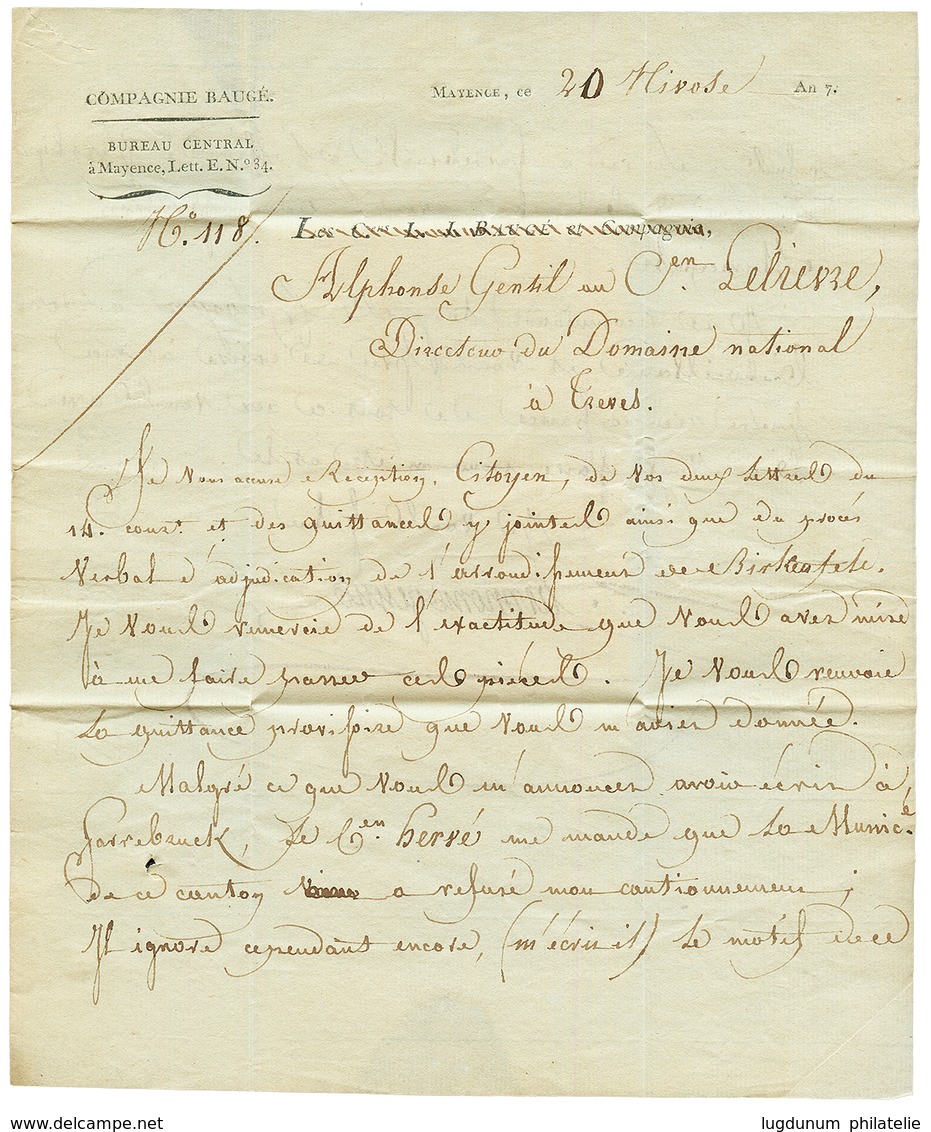 COMPAGNIE BAUGÉ.
MAYENCE, ce 20 Nivose An 7.
BUREAU CENTRAL
à Mayence, Lett. E. N.º 34.
N.º 118.
Alphonse Gentil au C.en Lelievre,
Directeur du Domaine national
à Treves.
Je vous accuse Réception, Citoyen, de vos deux Lettres du
14. cour.t et des quittances y jointes ainsi que du procès
Verbal d'adjudication de l'arrondissement de Birkenfeld.
Je vous remercie de l'exactitude que vous avez mise
à me faire passer ces pièces. Je vous renvoie
la quittance provisoire que vous m'aviez donnée.
Malgré ce que vous m'annoncez avoir écrit à
Sarrebruck, le C.en hervé me mande que la Munic.é
de ce canton a refusé mon cautionnement ;
Il ignore cependant encore, (m'écrit il) le motif de ce
delcampe.net
lugdunum philatelie